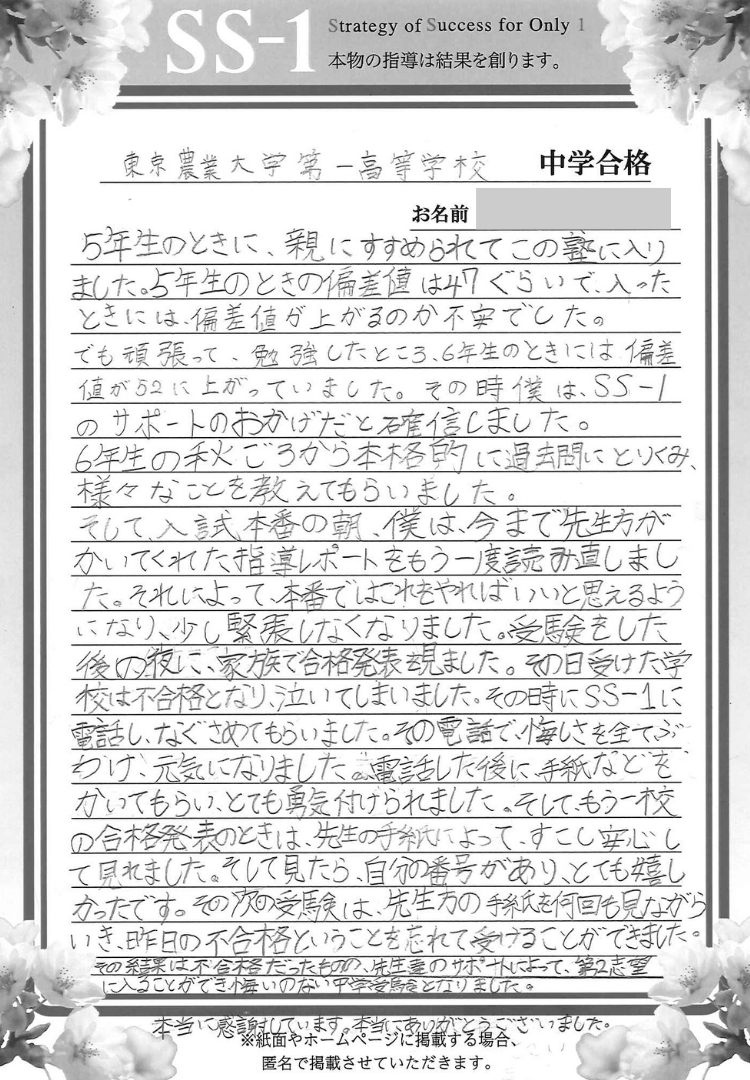 SS-1
Strategy of Success for Only 1
本物の指導は結果を創ります。
東京農業大学第一高等学校 中学合格
お名前
5年生のときに、親にすすめられてこの塾に入り
ました。5年生のときの偏差値は47ぐらいで、入った
ときには、偏差値が上がるのか不安でした。
でも頑張って、勉強したところ、6年生のときには偏差
値が52に上がっていました。その時僕は、SS-1
のサポートのおかげだと確信しました。
6年生の秋ごろから本格的に過去問にとりくみ、
様々なことを教えてもらいました。
そして、入試本番の朝、僕は、今まで先生方が
かいてくれた指導レポートをもう一度読み直しまし
た。それによって、本番ではこれをやればいいと思えるよう
になり、少し緊張しなくなりました。受験をした
後の夜に、家族で合格発表を見ました。その日受けた学
校は不合格となり、泣いてしまいました。その時にSS-1に
電話し、なぐさめてもらいました。その電話で、悔しさを全てぶ
つけ、元気になりました。電話した後に、手紙などを
かいてもらい、とても勇気付けられました。そして、もう一校
の合格発表のときは、先生の手紙によって、すこし安心し
て見れました。そして見たら、自分の番号があり、とても嬉し
かったです。その次の受験は、先生方の手紙を何回も見ながら
いき、昨日の不合格ということを忘れて受けることができました。
その結果は不合格だったものの、先生達のサポートによって、第2志望
に入ることができ悔いのない中学受験となりました。
本当に感謝しています。本当にありがとうございました。
※紙面やホームページに掲載する場合、
匿名で掲載させていただきます。